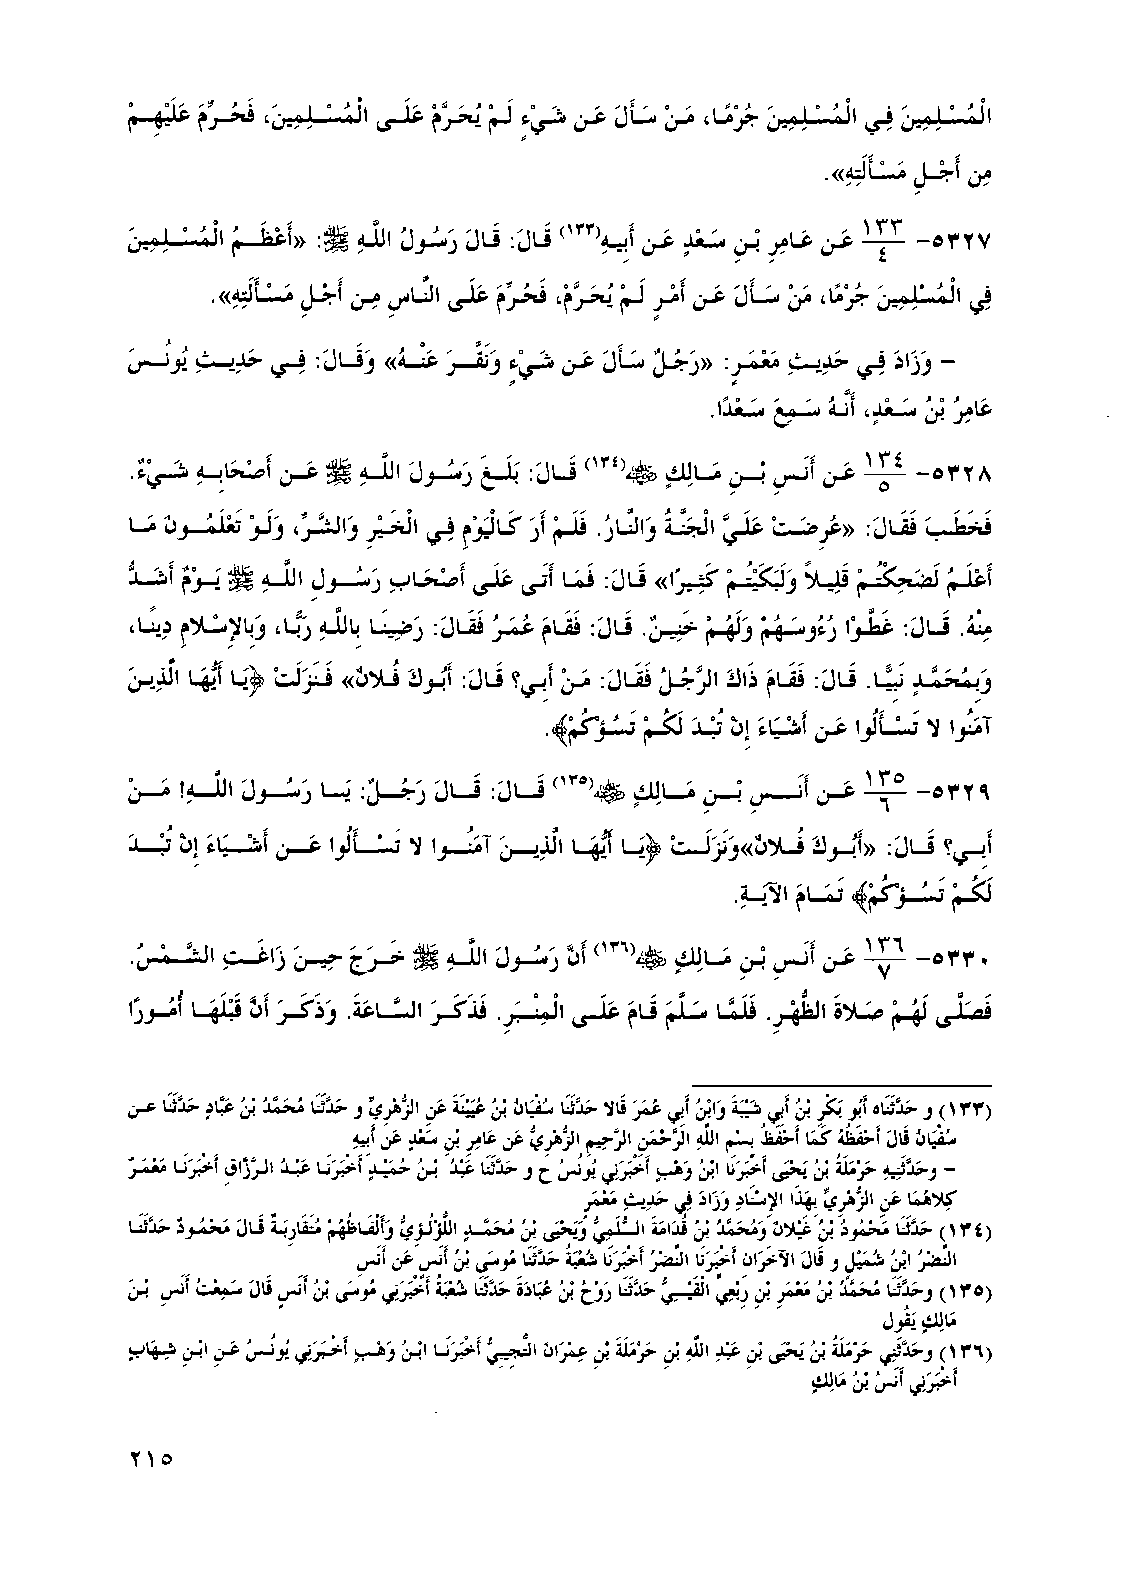 الْمُسْلِمِينَ فِي الْمُسْلِمِينَ جُرْمًا، مَنْ سَأَلَ عَن شَيْءٍ لَمْ يُحَرَّمْ عَلَى الْمُسْلِمِينَ، فَحُرِّمَ عَلَيْهِمْ
مِن أَجْلِ مَسْأَلَتِهِ».
٥٣٢٧- ١٣٣/٤ عَن عَامِرِ بْنِ سَعْدٍ عَن أَبِيهِ(١٣٣) قَالَ: قَالَ رَسُولُ اللَّهِ ﷺ: «أَعْظَمُ الْمُسْلِمِينَ
فِي الْمُسْلِمِينَ جُرْمًا، مَنْ سَأَلَ عَن أَمْرٍ لَمْ يُحَرَّمْ، فَحُرِّمَ عَلَى النَّاسِ مِن أَجْلِ مَسْأَلَتِهِ».
– وَزَادَ فِي حَدِيثِ مَعْمَرٍ: «رَجُلٌ سَأَلَ عَن شَيْءٍ وَنَقَّرَ عَنْهُ» وَقَالَ: فِي حَدِيثِ يُونُسَ
عَامِرُ بْنُ سَعْدٍ، أَنَّهُ سَمِعَ سَعْدًا.
٥٣٢٨- ١٣٤/٥ عَن أَنَسِ بْنِ مَالِكٍ ﷺ(١٣٤) قَالَ: بَلَغَ رَسُولَ اللَّهِ ﷺ عَن أَصْحَابِهِ شَيْءٌ.
فَخَطَبَ فَقَالَ: «عُرِضَتْ عَلَيَّ الْجَنَّةُ وَالنَّارُ. فَلَمْ أَرَ كَالْيَوْمِ فِي الْخَيْرِ وَالشَّرِّ، وَلَوْ تَعْلَمُونَ مَا
أَعْلَمُ لَضَحِكْتُمْ قَلِيلاً وَلَبَكَيْتُمْ كَثِيرًا» قَالَ: فَمَا أَتَى عَلَى أَصْحَابِ رَسُولِ اللَّهِ ﷺ يَوْمٌ أَشَدُّ
مِنْهُ. قَالَ: غَطَّوْا رُءُوسَهُمْ وَلَهُمْ خَنِينٌ. قَالَ: فَقَامَ عُمَرُ فَقَالَ: رَضِينَا بِاللَّهِ رَبًّا، وَبِالإِسْلامِ دِينًا،
وَبِمُحَمَّدٍ نَبِيًّا. قَالَ: فَقَامَ ذَاكَ الرَّجُلُ فَقَالَ: مَنْ أَبِي؟ قَالَ: أَبُوكَ فُلانٌ» فَنَزَلَتْ ﴿يَا أَيُّهَا الَّذِينَ
آمَنُوا لا تَسْأَلُوا عَن أَشْيَاءَ إِنْ تُبْدَ لَكُمْ تَسُؤْكُمْ﴾.
٥٣٢٩- ١٣٥/٦ عَن أَنَسِ بْنِ مَالِكٍ ﷺ(١٣٥) قَالَ: قَالَ رَجُلٌ: يَا رَسُولَ اللَّهِ! مَنْ
أَبِي؟ قَالَ: «أَبُوكَ فُلانٌ»وَنَزَلَتْ ﴿يَا أَيُّهَا الَّذِينَ آمَنُوا لا تَسْأَلُوا عَن أَشْيَاءَ إِنْ تُبْدَ
لَكُمْ تَسُؤْكُمْ﴾ تَمَامَ الآيَةِ.
٥٣٣٠- ١٣٦/٧ عَن أَنَسِ بْنِ مَالِكٍ ﷺ(١٣٦) أَنَّ رَسُولَ اللَّهِ ﷺ خَرَجَ حِينَ زَاغَتِ الشَّمْسُ.
فَصَلَّى لَهُمْ صَلاةَ الظُّهْرِ. فَلَمَّا سَلَّمَ قَامَ عَلَى الْمِنْبَرِ. فَذَكَرَ السَّاعَةَ. وَذَكَرَ أَنَّ قَبْلَهَا أُمُورًا
(١٣٣) و حَدَّثَنَاه أَبُو بَكْرِ بْنُ أَبِي شَيْبَةَ وَابْنُ أَبِي عُمَرَ قَالا حَدَّثَنَا سُفْيَانُ بْنُ عُيَيْنَةَ عَنِ الزُّهْرِيِّ و حَدَّثَنَا مُحَمَّدُ بْنُ عَبَّادٍ حَدَّثَنَا عَن
سُفْيَانُ قَالَ أَحْفَظُهُ كَمَا أَحْفَظُ بِسْمِ اللَّهِ الرَّحْمَنِ الرَّحِيمِ الزُّهْرِيُّ عَن عَامِرِ بْنِ سَعْدٍ عَن أَبِيهِ
– وحَدَّثَنِيهِ حَرْمَلَةُ بْنُ يَحْيَى أَخْبَرَنَا ابْنُ وَهْبٍ أَخْبَرَنِي يُونُسُ ح و حَدَّثَنَا عَبْدُ بْنُ حُمَيْدٍ أَخْبَرَنَا عَبْدُ الرَّزَّاقِ أَخْبَرَنَا مَعْمَرٌ
كِلاهُمَا عَنِ الزُّهْرِيِّ بِهَذَا الإِسْنَادِ وَزَادَ فِي حَدِيثِ مَعْمَرٍ
(١٣٤) حَدَّثَنَا مَحْمُودُ بْنُ غَيْلانَ وَمُحَمَّدُ بْنُ قُدَامَةَ السُّلَمِيُّ وَيَحْيَى بْنُ مُحَمَّدٍ اللُّؤْلُؤِيُّ وَأَلْفَاظُهُمْ مُتَقَارِبَةٌ قَالَ مَحْمُودٌ حَدَّثَنَا
النَّضْرُ ابْنُ شُمَيْلٍ و قَالَ الآخَرَانِ أَخْبَرَنَا النَّضْرُ أَخْبَرَنَا شُعْبَةُ حَدَّثَنَا مُوسَى بْنُ أَنَسٍ عَن أَنَسِ
(١٣٥) وحَدَّثَنَا مُحَمَّدُ بْنُ مَعْمَرِ بْنِ رِبْعِيٍّ الْقَيْسِيُّ حَدَّثَنَا رَوْحُ بْنُ عُبَادَةَ حَدَّثَنَا شُعْبَةُ أَخْبَرَنِي مُوسَى بْنُ أَنَسٍ قَالَ سَمِعْتُ أَنَسَ بْنَ
مَالِكٍ يَقُولُ
(١٣٦) وحَدَّثَنِي حَرْمَلَةُ بْنُ يَحْيَى بْنِ عَبْدِ اللَّهِ بْنِ حَرْمَلَةَ بْنِ عِمْرَانَ التُّجِيبِيُّ أَخْبَرَنَا ابْنُ وَهْبٍ أَخْبَرَنِي يُونُسُ عَنِ ابْنِ شِهَابٍ
أَخْبَرَنِي أَنَسُ بْنُ مَالِكٍ
٢١٥